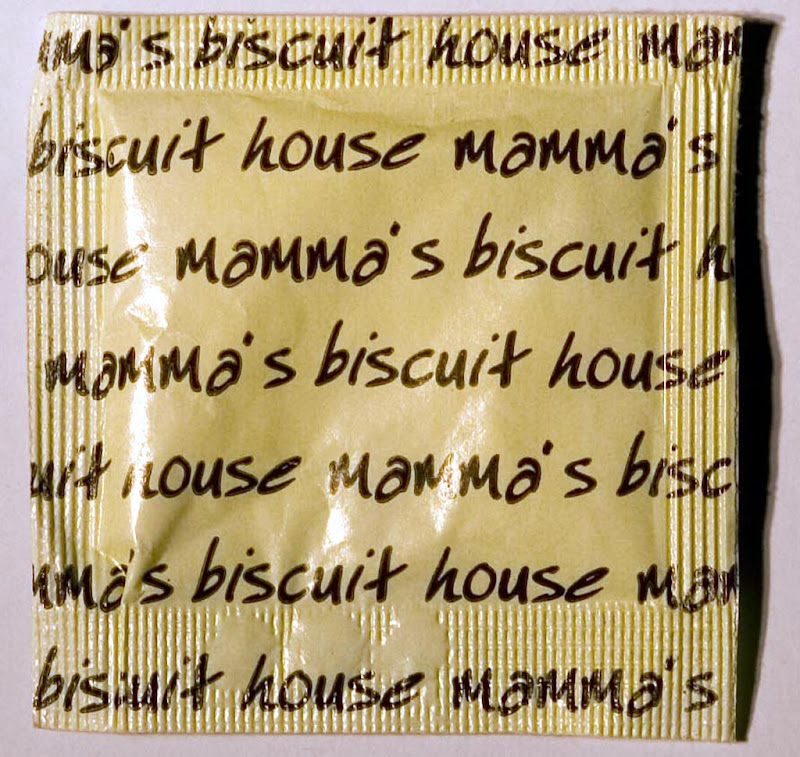 ma's biscuit house mam
biscuit house mamma's
ouse mamma's biscuit h
mamma's biscuit house
uit house mamma's bisc
mma's biscuit house mam
biscuit house mamma's